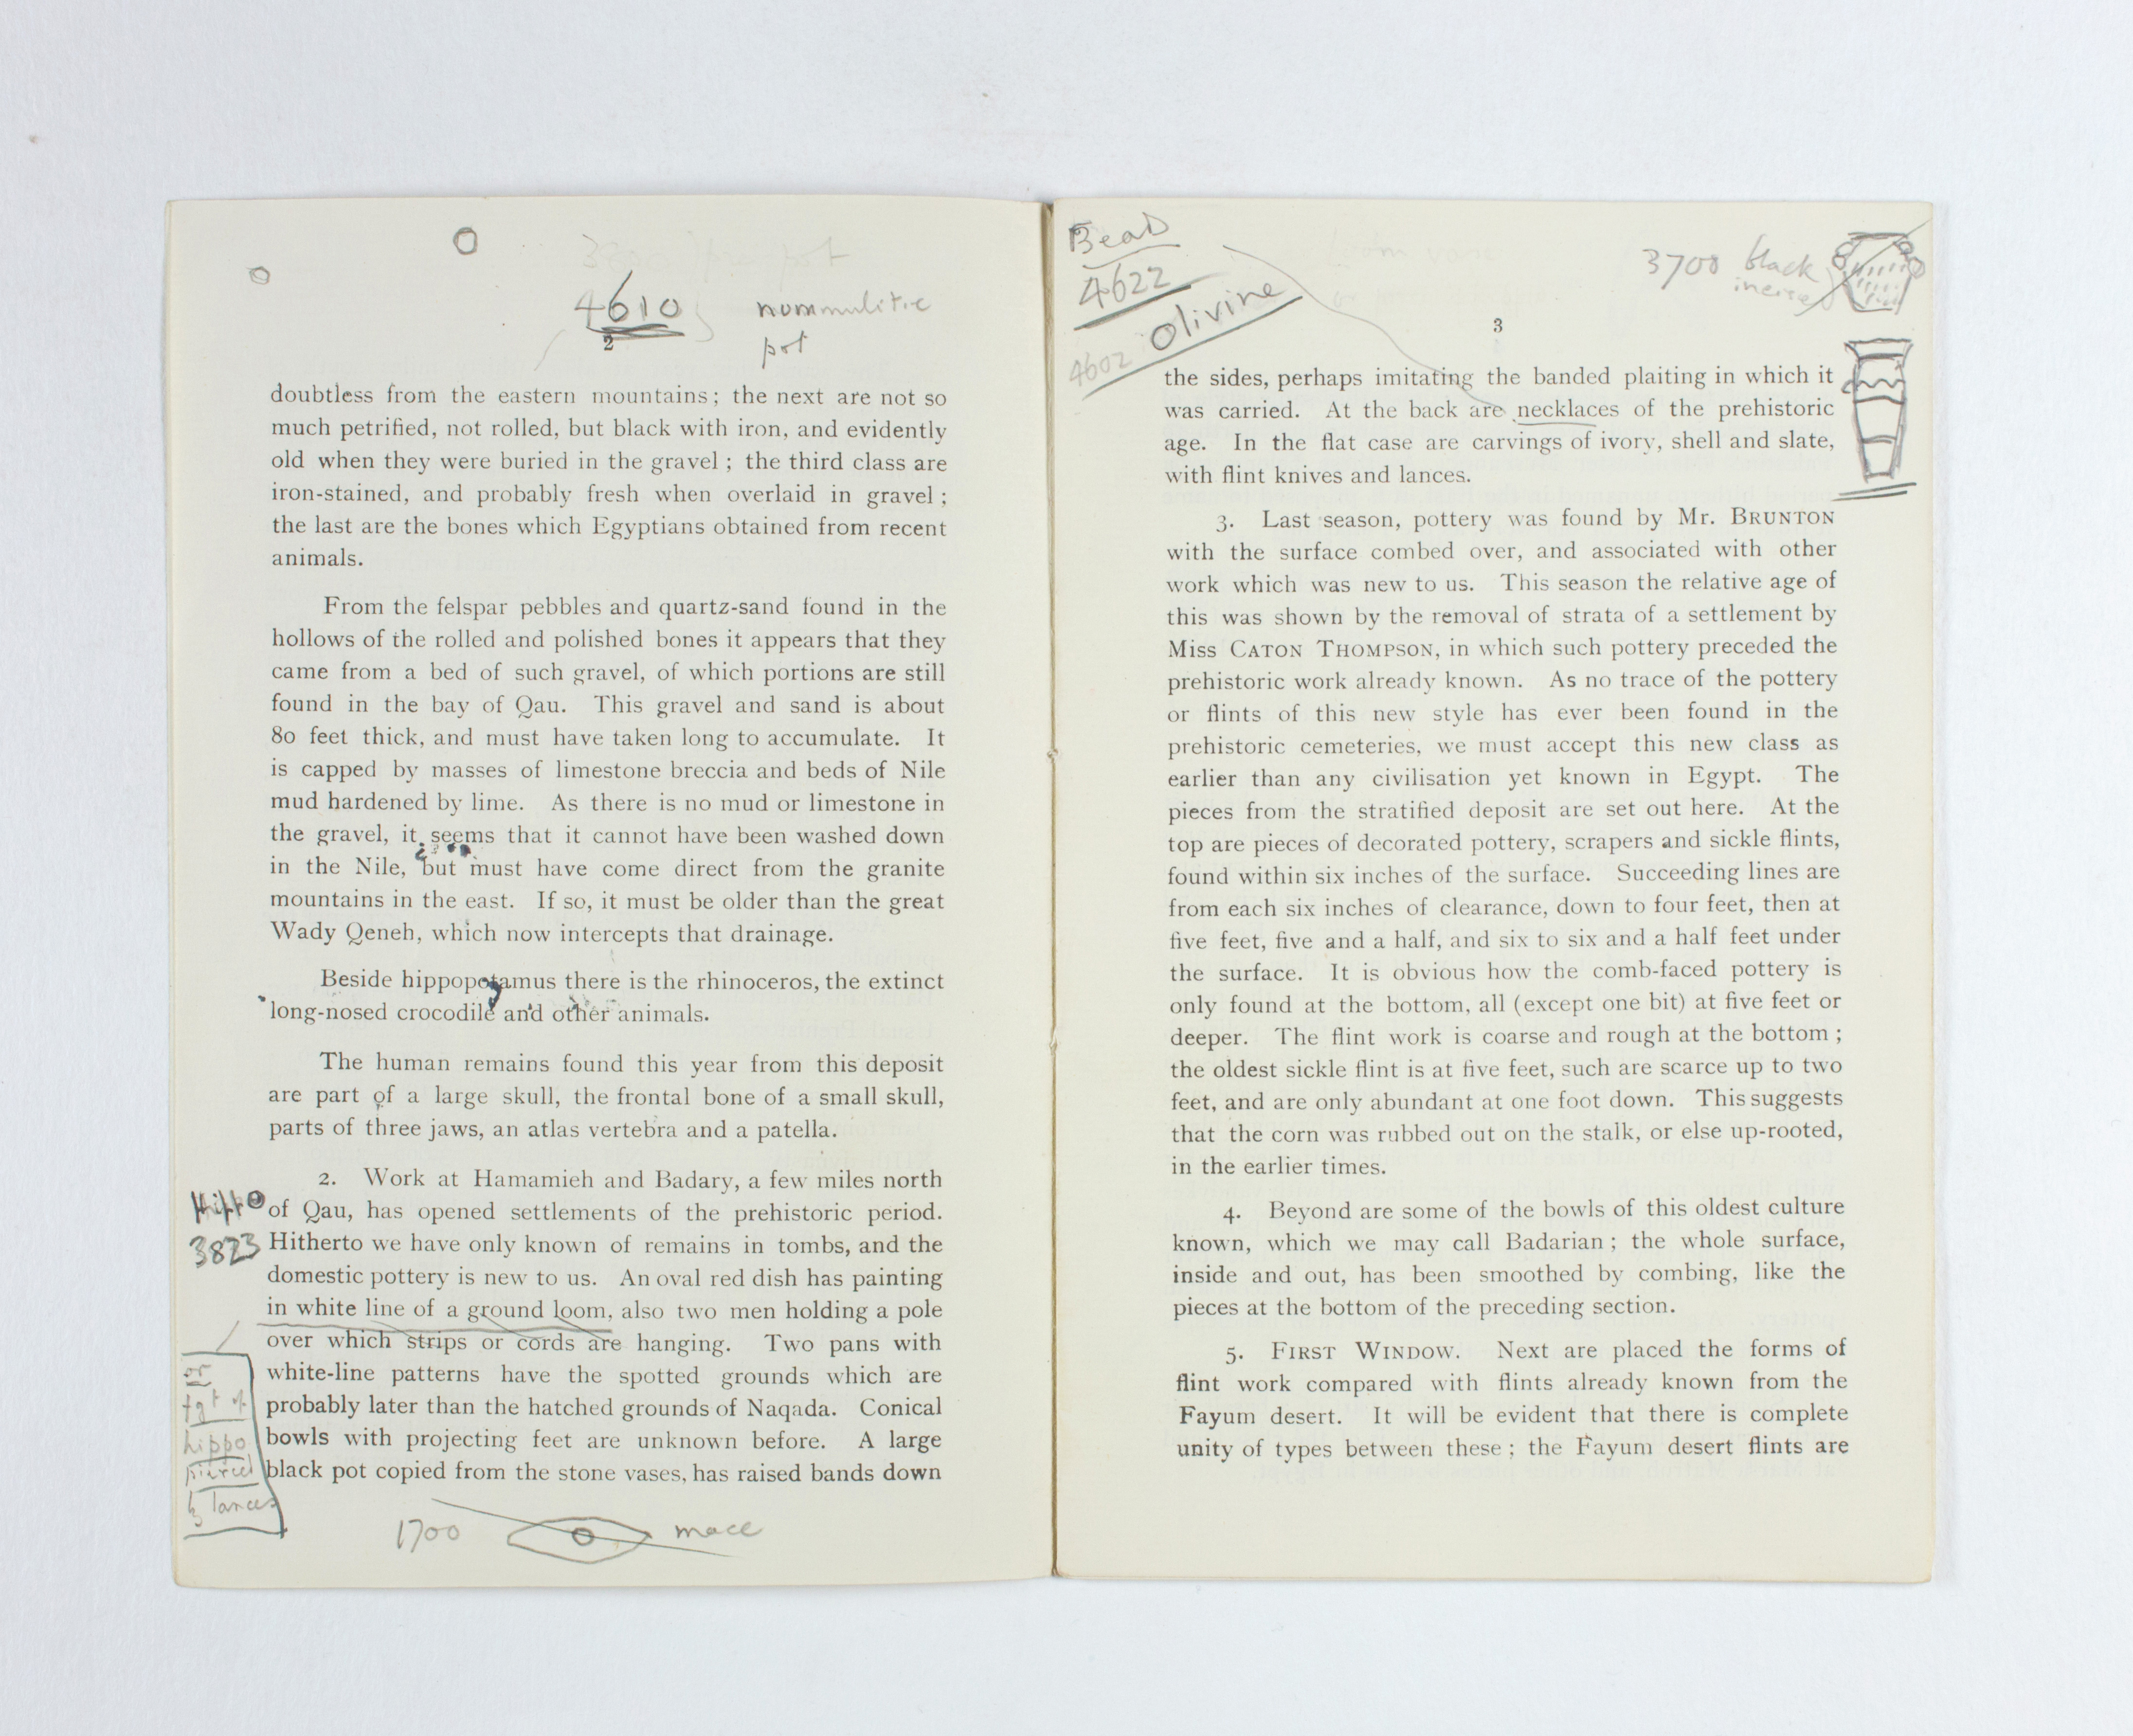 4610 nommulitic
pot
2
doubtless from the eastern mountains; the next are not so
much petrified, not rolled, but black with iron, and evidently
old when they were buried in the gravel; the third class are
iron-stained, and probably fresh when overlaid in gravel;
the last are the bones which Egyptians obtained from recent
animals.
From the felspar pebbles and quartz-sand found in the
hollows of the rolled and polished bones it appears that they
came from a bed of such gravel, of which portions are still
found in the bay of Qau. This gravel and sand is about
80 feet thick, and must have taken long to accumulate. It
is capped by masses of limestone breccia and beds of Nile
mud hardened by lime. As there is no mud or limestone in
the gravel, it seems that it cannot have been washed down
in the Nile, but must have come direct from the granite
mountains in the east. If so, it must be older than the great
Wady Qeneh, which now intercepts that drainage.
Beside hippopotamus there is the rhinoceros, the extinct
long-nosed crocodile and other animals.
The human remains found this year from this deposit
are part of a large skull, the frontal bone of a small skull,
parts of three jaws, an atlas vertebra and a patella.
2. Work at Hamamieh and Badary, a few miles north
of Qau, has opened settlements of the prehistoric period.
Hitherto we have only known of remains in tombs, and the
domestic pottery is new to us. An oval red dish has painting
in white line of a ground loom, also two men holding a pole
over which strips or cords are hanging. Two pans with
white-line patterns have the spotted grounds which are
probably later than the hatched grounds of Naqada. Conical
bowls with projecting feet are unknown before. A large
black pot copied from the stone vases, has raised bands down
Hippo
3823
or
fgt of
hippo
pierced
by lances
1700 mace
Bead
4622
Olivine
4602
3700 black
incised
3
the sides, perhaps imitating the banded plaiting in which it
was carried. At the back are necklaces of the prehistoric
age. In the flat case are carvings of ivory, shell and slate,
with flint knives and lances.
3. Last season, pottery was found by Mr. BRUNTON
with the surface combed over, and associated with other
work which was new to us. This season the relative age of
this was shown by the removal of strata of a settlement by
Miss CATON THOMPSON, in which such pottery preceded the
prehistoric work already known. As no trace of the pottery
or flints of this new style has ever been found in the
prehistoric cemeteries, we must accept this new class as
earlier than any civilisation yet known in Egypt. The
pieces from the stratified deposit are set out here. At the
top are pieces of decorated pottery, scrapers and sickle flints,
found within six inches of the surface. Succeeding lines are
from each six inches of clearance, down to four feet, then at
five feet, five and a half, and six to six and a half feet under
the surface. It is obvious how the comb-faced pottery is
only found at the bottom, all (except one bit) at five feet or
deeper. The flint work is coarse and rough at the bottom;
the oldest sickle flint is at five feet, such are scarce up to two
feet, and are only abundant at one foot down. This suggests
that the corn was rubbed out on the stalk, or else up-rooted,
in the earlier times.
4. Beyond are some of the bowls of this oldest culture
known, which we may call Badarian; the whole surface,
inside and out, has been smoothed by combing, like the
pieces at the bottom of the preceding section.
5. FIRST WINDOW. Next are placed the forms of
flint work compared with flints already known from the
Fayum desert. It will be evident that there is complete
unity of types between these; the Fayum desert flints are